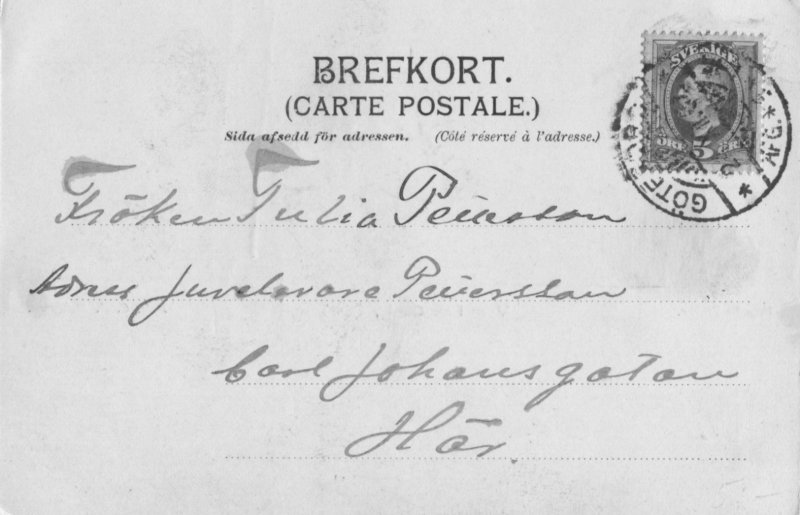 BREFKORT.
(CARTE POSTALE.)
Sida afsedd för adressen. (Côté réservé à l'adresse.)
SVERIGE
ÖRE 5 ÖRE
GÖTEBORG
Fröken Julia Petersson
Adress Juvelerare Petersson
Carl Johansgatan
Här